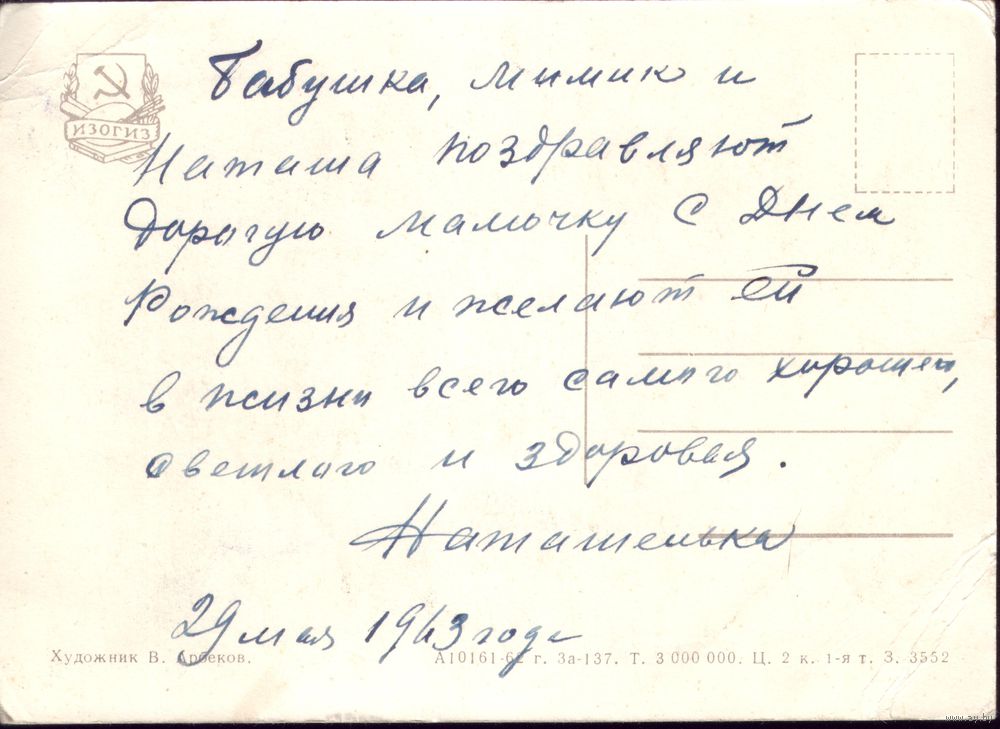 ИЗОГИЗ
Бабушка, Мимик и
Наташа поздравляют
дорогую мамочку с Днем
Рождения и желают ей
в жизни всего самого хорошего,
светлого и здоровья.
Наташенька
29 мая 1963 года
Художник В. Арбеков.
А10161-62 г. За-137. Т. 3 000 000. Ц. 2 к. 1-я т. З. 3552
www.ay.by